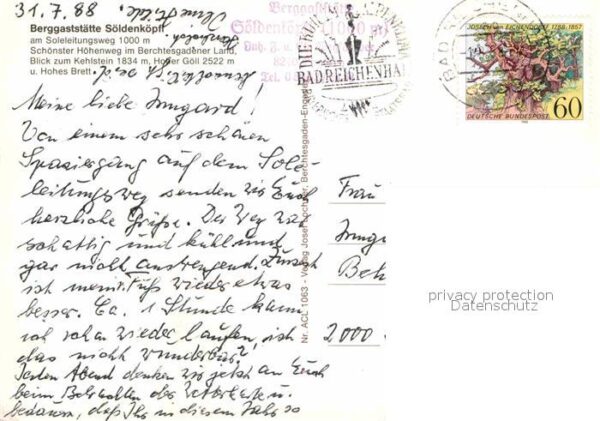 31.7.88
Berggaststätte Söldenköpfl
am Soleleitungsweg 1000 m
Schönster Höhenweg im Berchtesgadener Land,
Blick zum Kehlstein 1834 m, Hoher Göll 2522 m
u. Hohes Brett
Berggaststätte
BAD REICHENHALL
JOSEPH VON EICHENDORFF 1788-1857
DEUTSCHE BUNDESPOST
60
Meine liebe Irmgard!
Von einem sehr schönen
Spaziergang auf dem Sole-
leitungsweg senden wir Euch
herzliche Grüße. Der Weg war
schattig und kühl und
gar nicht anstrengend. Zurzeit
ist mein Fuß wieder etwas
besser. Ca. 1 Stunde kann
ich schon wieder laufen, ist
das nicht wunderbar?
Jeden Abend denken wir jetzt an Euch
beim Betrachten der Wetterkarte u.
bedauern, daß Ihr in diesem Jahr so
Nr. ACL 1063 - Verlag Josef
Frau
Irmga
2000
privacy protection
Datenschutz